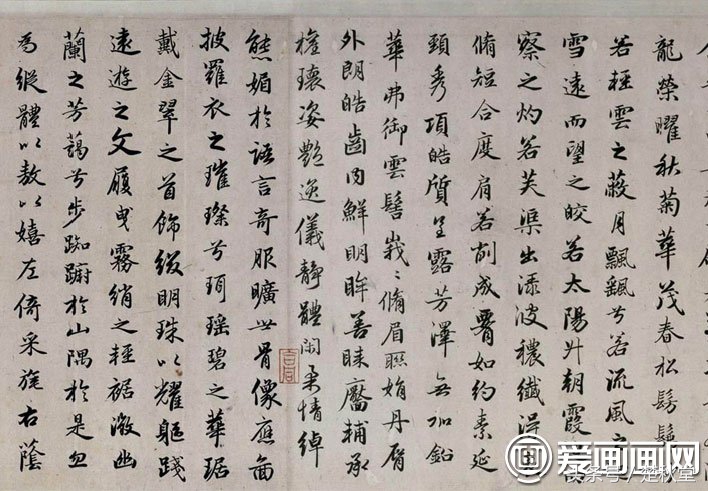 龍榮曜秋菊華茂春松髣髴
若輕雲之蔽月飄飖兮若流風之
雪遠而望之皎若太陽升朝霞
察之灼若芙渠出淥波穠纖得
脩短合度肩若削成腰如約素延
頸秀項皓質呈露芳澤無加鉛
華弗御雲髻峩〻脩眉聯娟丹脣
外朗皓齒內鮮明眸善睞靨輔承
權瓌姿艷逸儀靜體閑柔情綽
態媚於語言奇服曠世骨像應圖
披羅衣之璀璨兮珥瑤碧之華琚
戴金翠之首飾綴明珠以耀軀踐
遠遊之文履曳霧綃之輕裾微幽
蘭之芳藹兮步踟躕於山隅於是忽
焉縱體以敖以嬉左倚采旄右蔭
爱画画网
头条号/楚秋堂